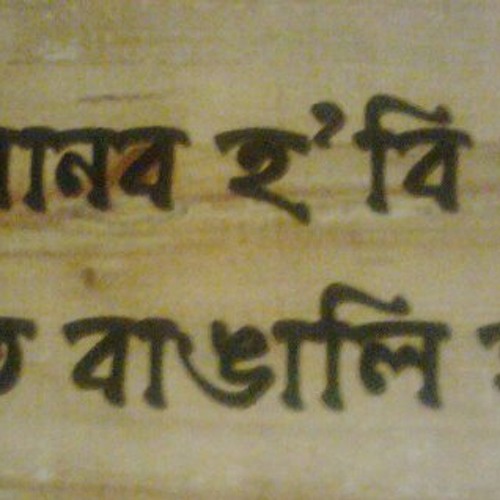 মানব হ'বি
বাঙালি